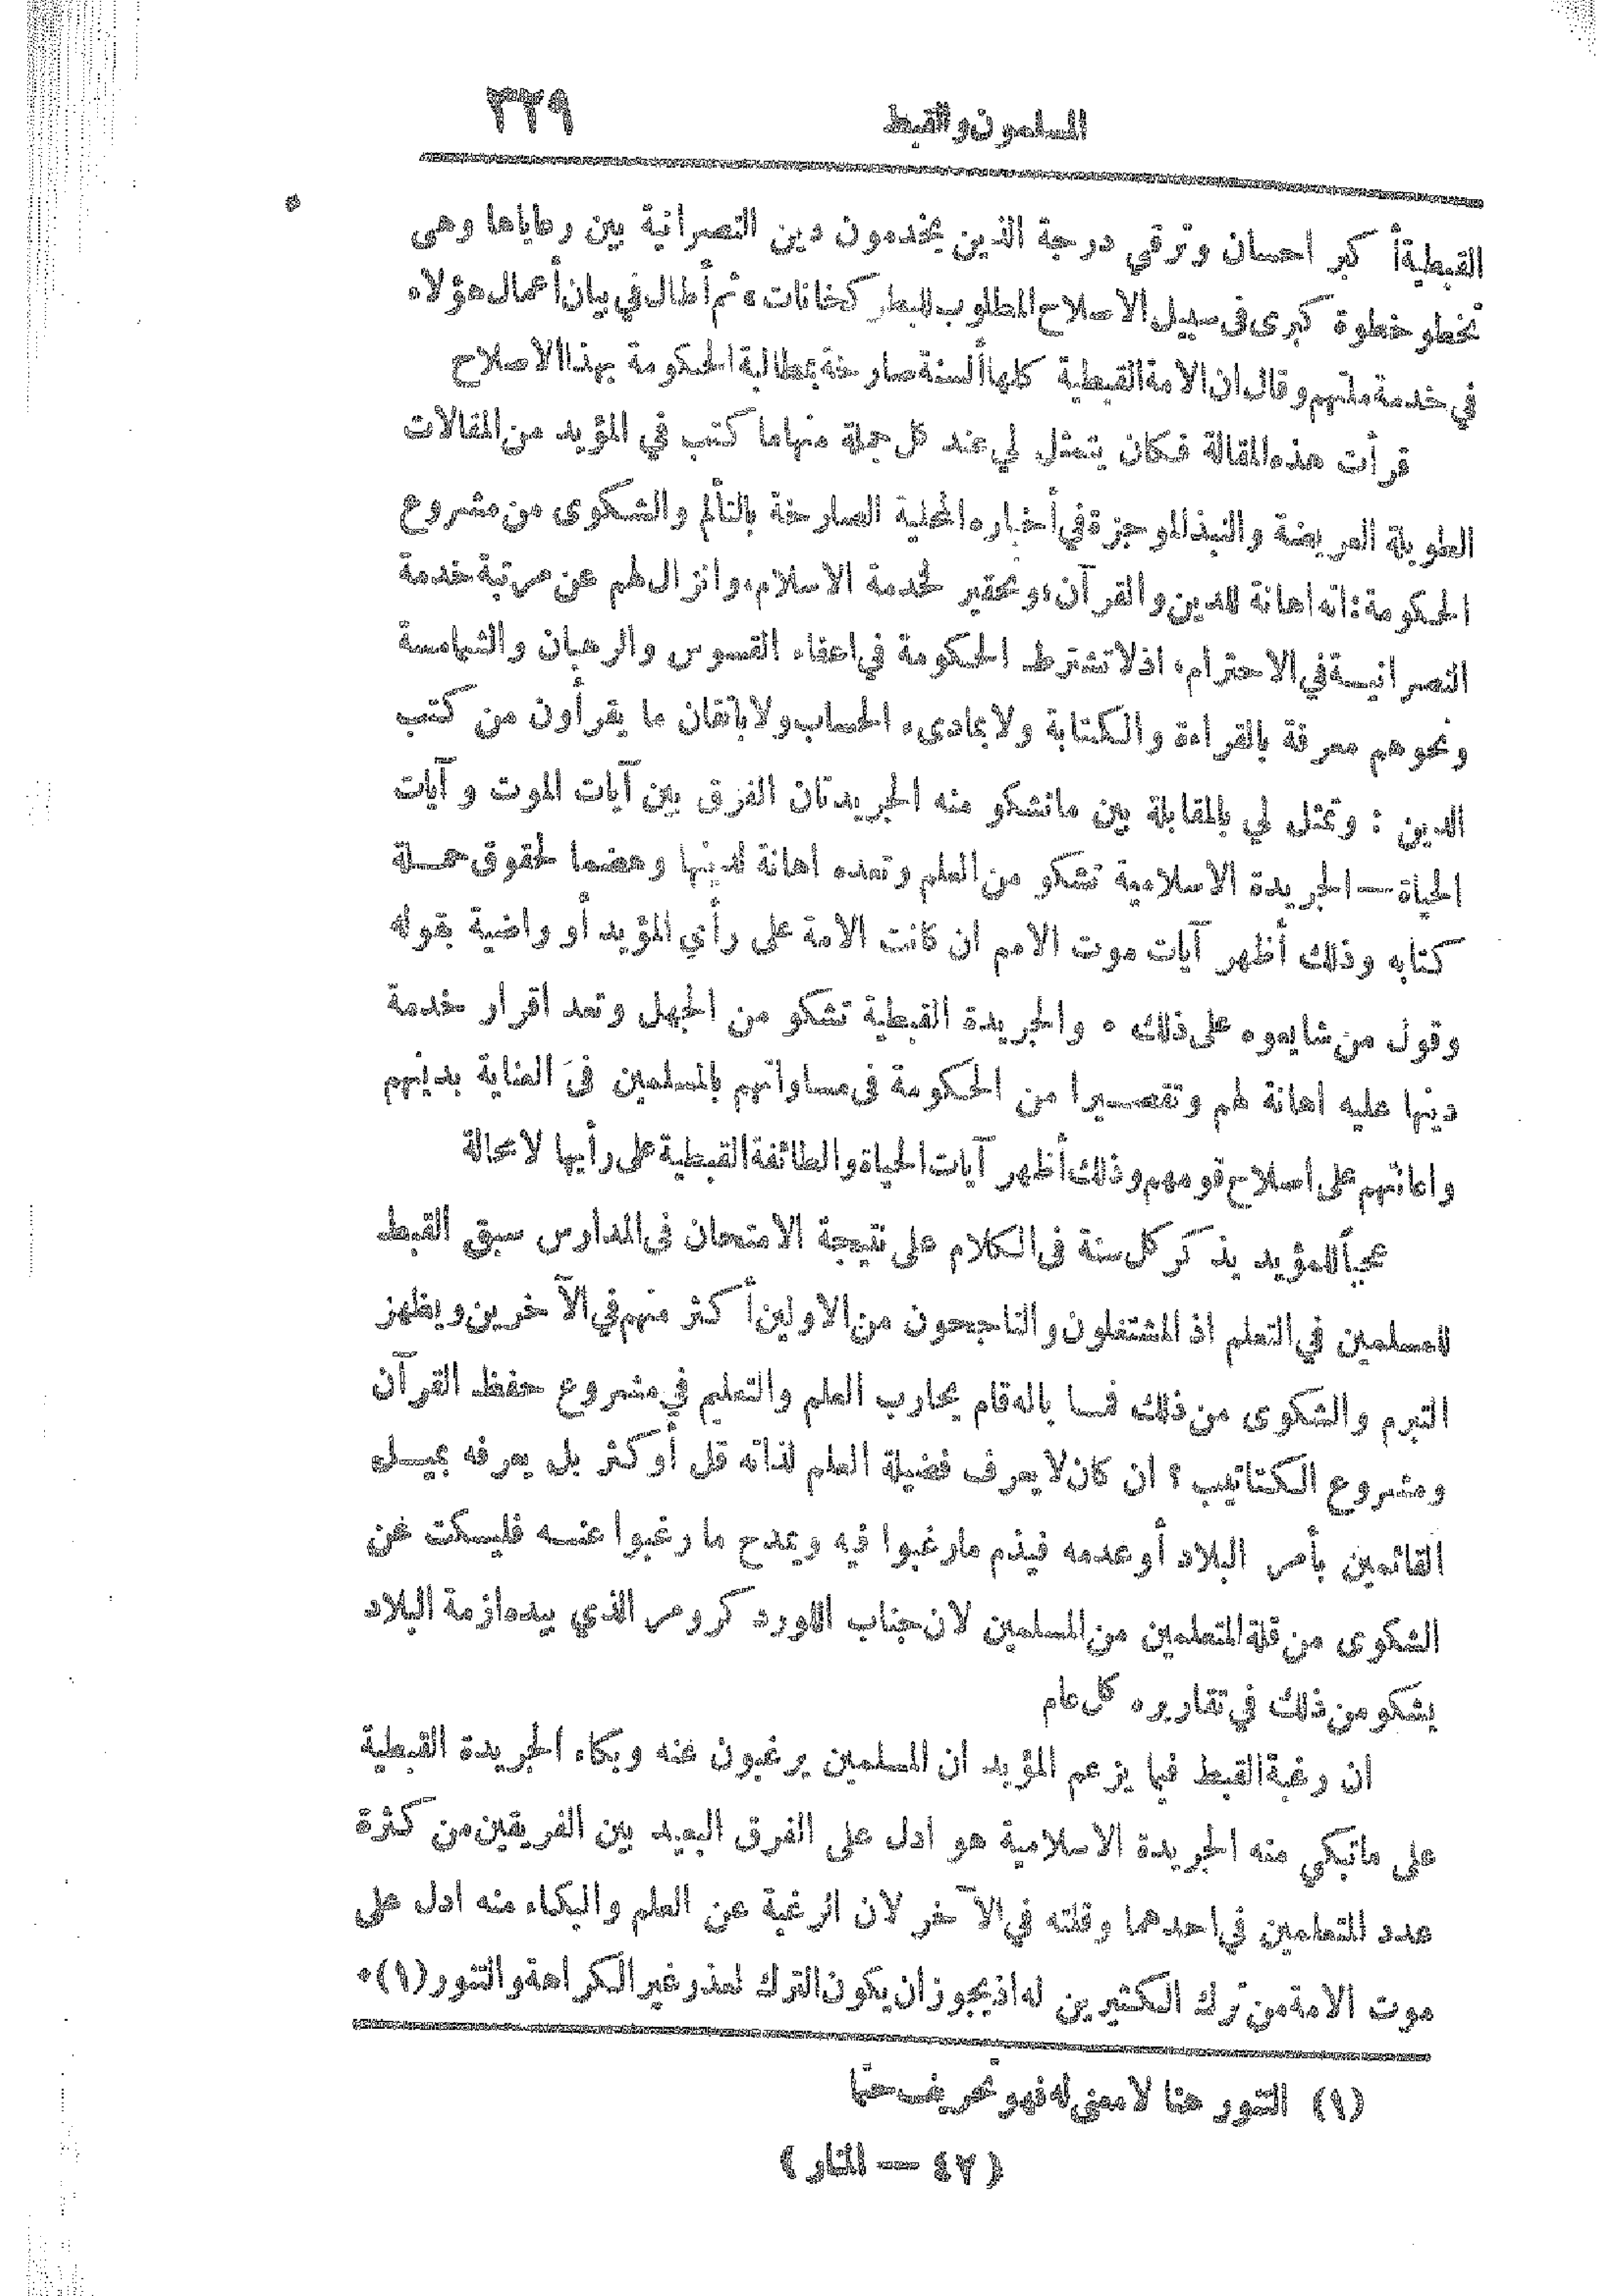 المسلمون والقبط ٣٢٩
القبطية أكبر احسان وترقي درجة الذين يخدمون دين النصرانية بين رعاياها وهى
تخطو خطوة كبرى فى سبيل الاصلاح المطلوب للبطركخانات، ثم أطال في بيان أعمال هؤلاء
في خدمة ملتهم وقال ان الامة القبطية كلها ألسنة صارخة بمطالبة الحكومة بهذا الاصلاح
قرأت هذه المقالة فكان يتمثل لي عند كل جملة منها ما كتب في المؤيد من المقالات
الطويلة العريضة والنبذ الموجزة في أخباره المحلية الصارخة بالتألم والشكوى من مشروع
الحكومة: انه اهانة للدين والقرآن، وتحقير لخدمة الاسلام، وانزال لهم عن مرتبة خدمة
النصرانية في الاحترام، اذ لا تشترط الحكومة في اعفاء القسوس والرهبان والشمامسة
ونحوهم معرفة بالقراءة والكتابة ولا بمبادىء الحساب ولا باتقان ما يقرأون من كتب
الدين : وتمثل لي بالمقابلة بين ما تشكو منه الجريدتان الفرق بين آيات الموت وآيات
الحياة — الجريدة الاسلامية تشكو من العلم وتعده اهانة لدينها وهضما لحقوق حملة
كتابه وذلك أظهر آيات موت الامم ان كانت الامة على رأي المؤيد أو راضية بقوله
وقول من شايعوه على ذلك ٠ والجريدة القبطية تشكو من الجهل وتعد اقرار خدمة
دينها عليه اهانة لهم وتقصيرا من الحكومة فى مساواتهم بالمسلمين فى العناية بدينهم
واعانتهم على اصلاح قومهم وذلك أظهر آيات الحياة والطائفة القبطية على رأيها لا محالة
عجباً للمؤيد يذكر كل سنة فى الكلام على نتيجة الامتحان فى المدارس سبق القبط
للمسلمين في التعلم اذ المشتغلون والناجحون من الاولين أكثر منهم في الآخرين ويظهر
التبرم والشكوى من ذلك فما باله قام يحارب العلم والتعليم في مشروع حفظ القرآن
ومشروع الكتاتيب ؟ ان كان لا يعرف فضيلة العلم لذاته قل أو كثر بل يعرفه بميل
القائمين بأمر البلاد أو عدمه فيذم ما رغبوا فيه ويمدح ما رغبوا عنه فليسكت عن
الشكوى من قلة المتعلمين من المسلمين لان جناب اللورد كرومر الذي بيده ازمة البلاد
يشكو من ذلك في تقاريره كل عام
ان رغبة القبط فيما يزعم المؤيد ان المسلمين يرغبون عنه وبكاء الجريدة القبطية
على ما تبكي منه الجريدة الاسلامية هو ادل على الفرق البعيد بين الفريقين من كثرة
عدد المتعلمين في احدهما وقلته في الآخر لان الرغبة عن العلم والبكاء منه ادل على
موت الامة من ترك الكثيرين له اذ يجوز ان يكون الترك لعذر غير الكراهة والتنور (١)٠
(١) التنور هنا لا معنى له فهو تحريف حتما
( ٤٢ — المنار )